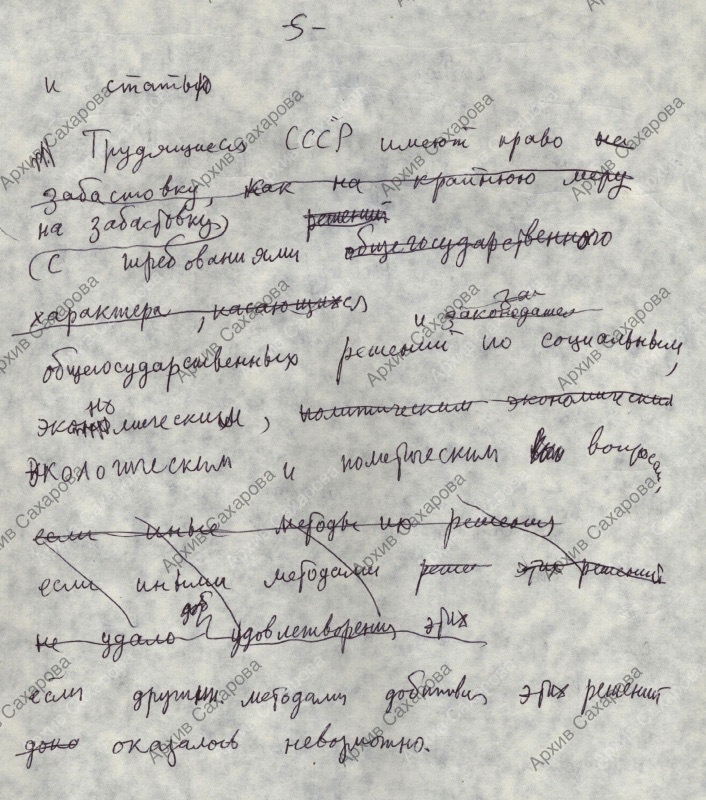 -5-
к статью
Трудящиеся СССР имеют право на
забастовку, как на крайнюю меру
на забастовку решений
(с требованиями общегосударственного
характера, касающихся
и законодател
общегосударственных решений по социальным,
экономическим, политическим экономическим
экологическим и политическим вопросам,
если иные методы их решения
если иными методами реше этих решений
не удало доб удовлетворения этих
если другими методами добиться этих решений
оказалось невозможно.
Архив Сахарова